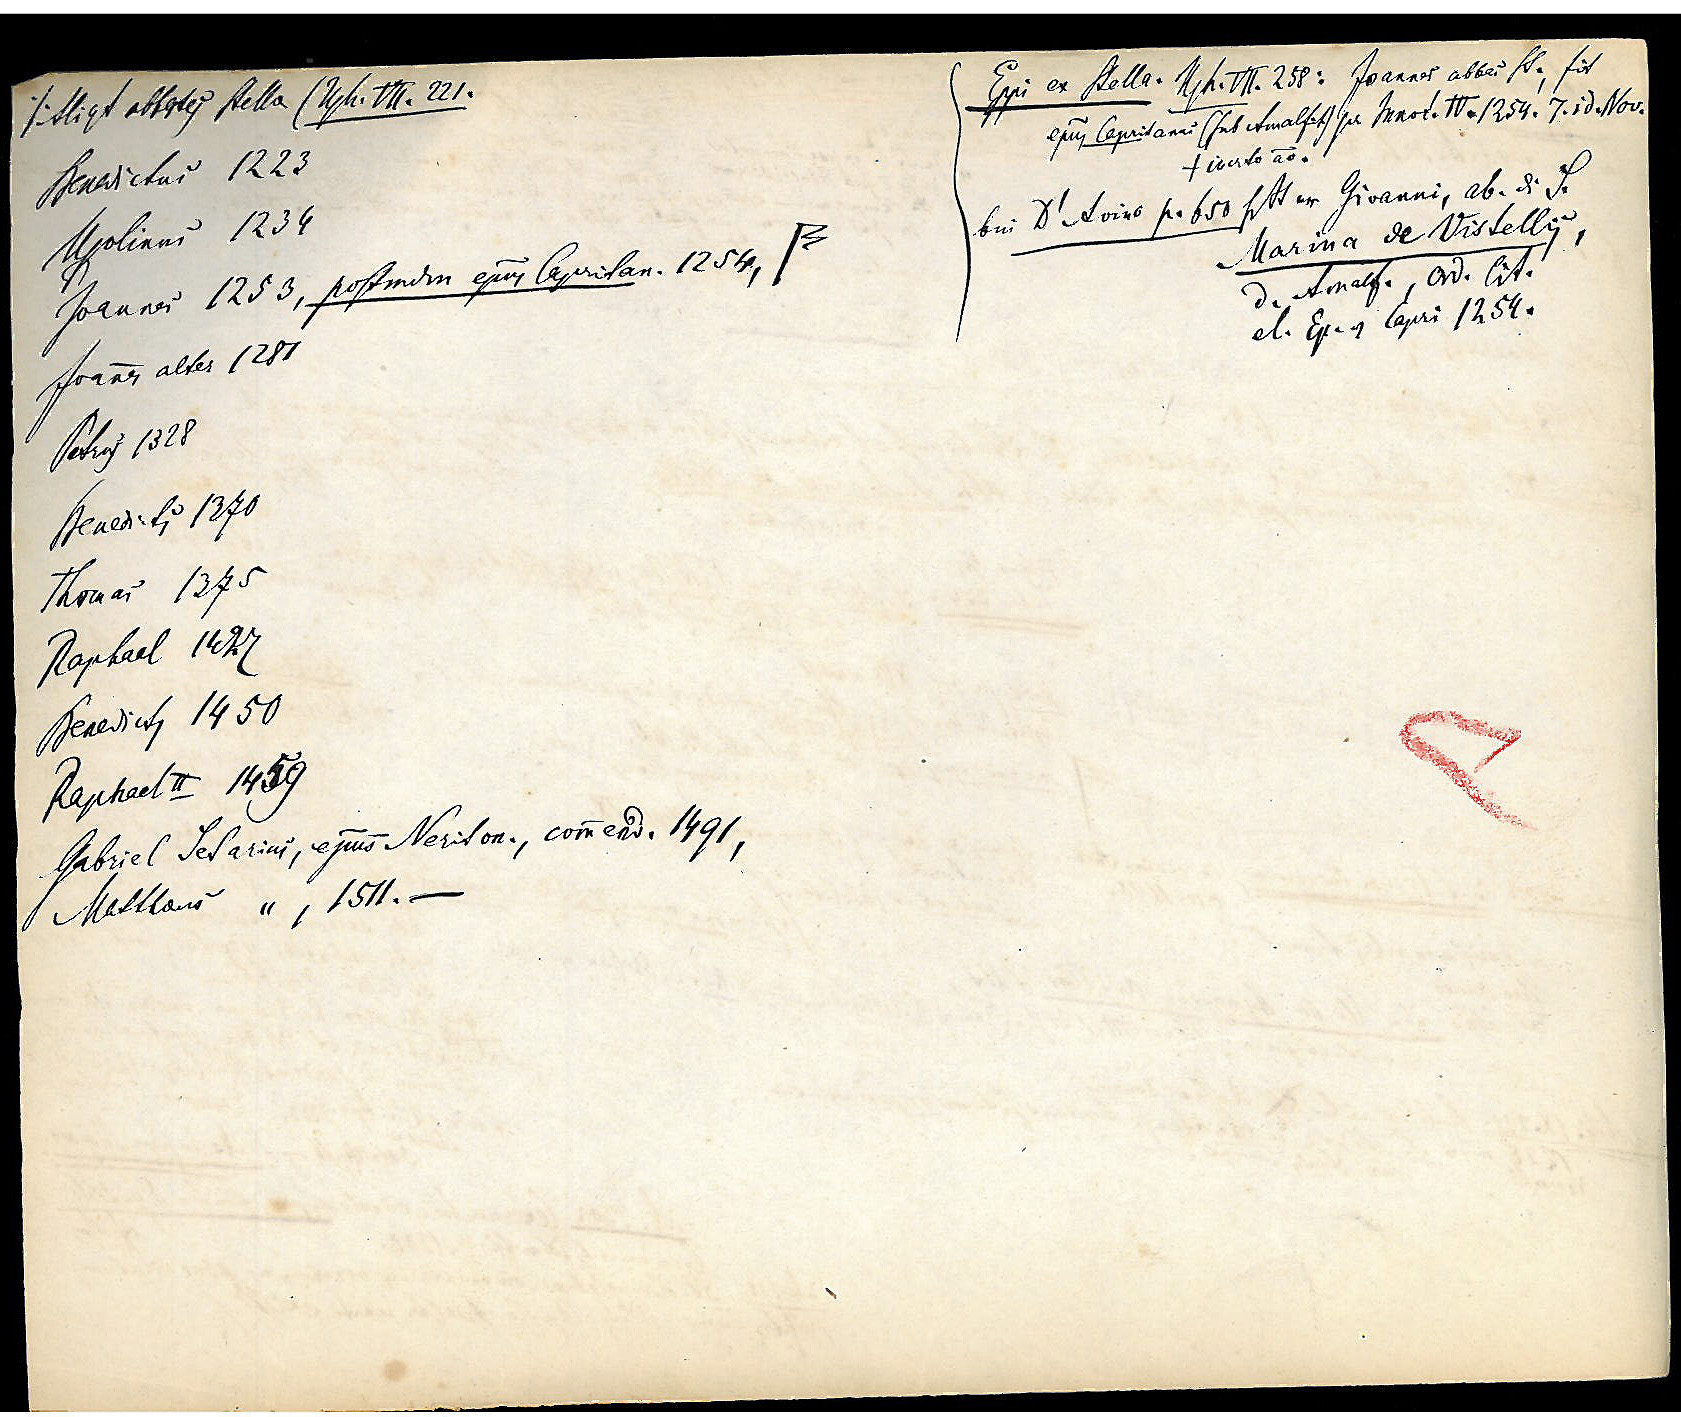 abbates Stella (Ugh. VII. 221.
Benedictus 1223
Ugolinus 1234
Joannes 1253, postmodm epus Capritan. 1254,
Joanes alter 1281
Petrus 1328
Benedictus 1370
Thomas 1375
Raphael 1427
Benedictus 1450
Raphael II 1459
Gabriel Setarius, epus Neriton., comend. 1491,
Matthaeus " , 1511. —
Epi ex Stella. Ugh. VII. 258: Joannes abbas St., fit
epus Capritanus (sub Amalfit) per Innoc. IV. 1254. 7. id. Nov.
† incerto ao.
bei D'Avino p. 650 Giovanni, ab. di S.
Marina de Vistellis,
d. Amalf., Ord. Cist.
el. Ep. Capri 1254.